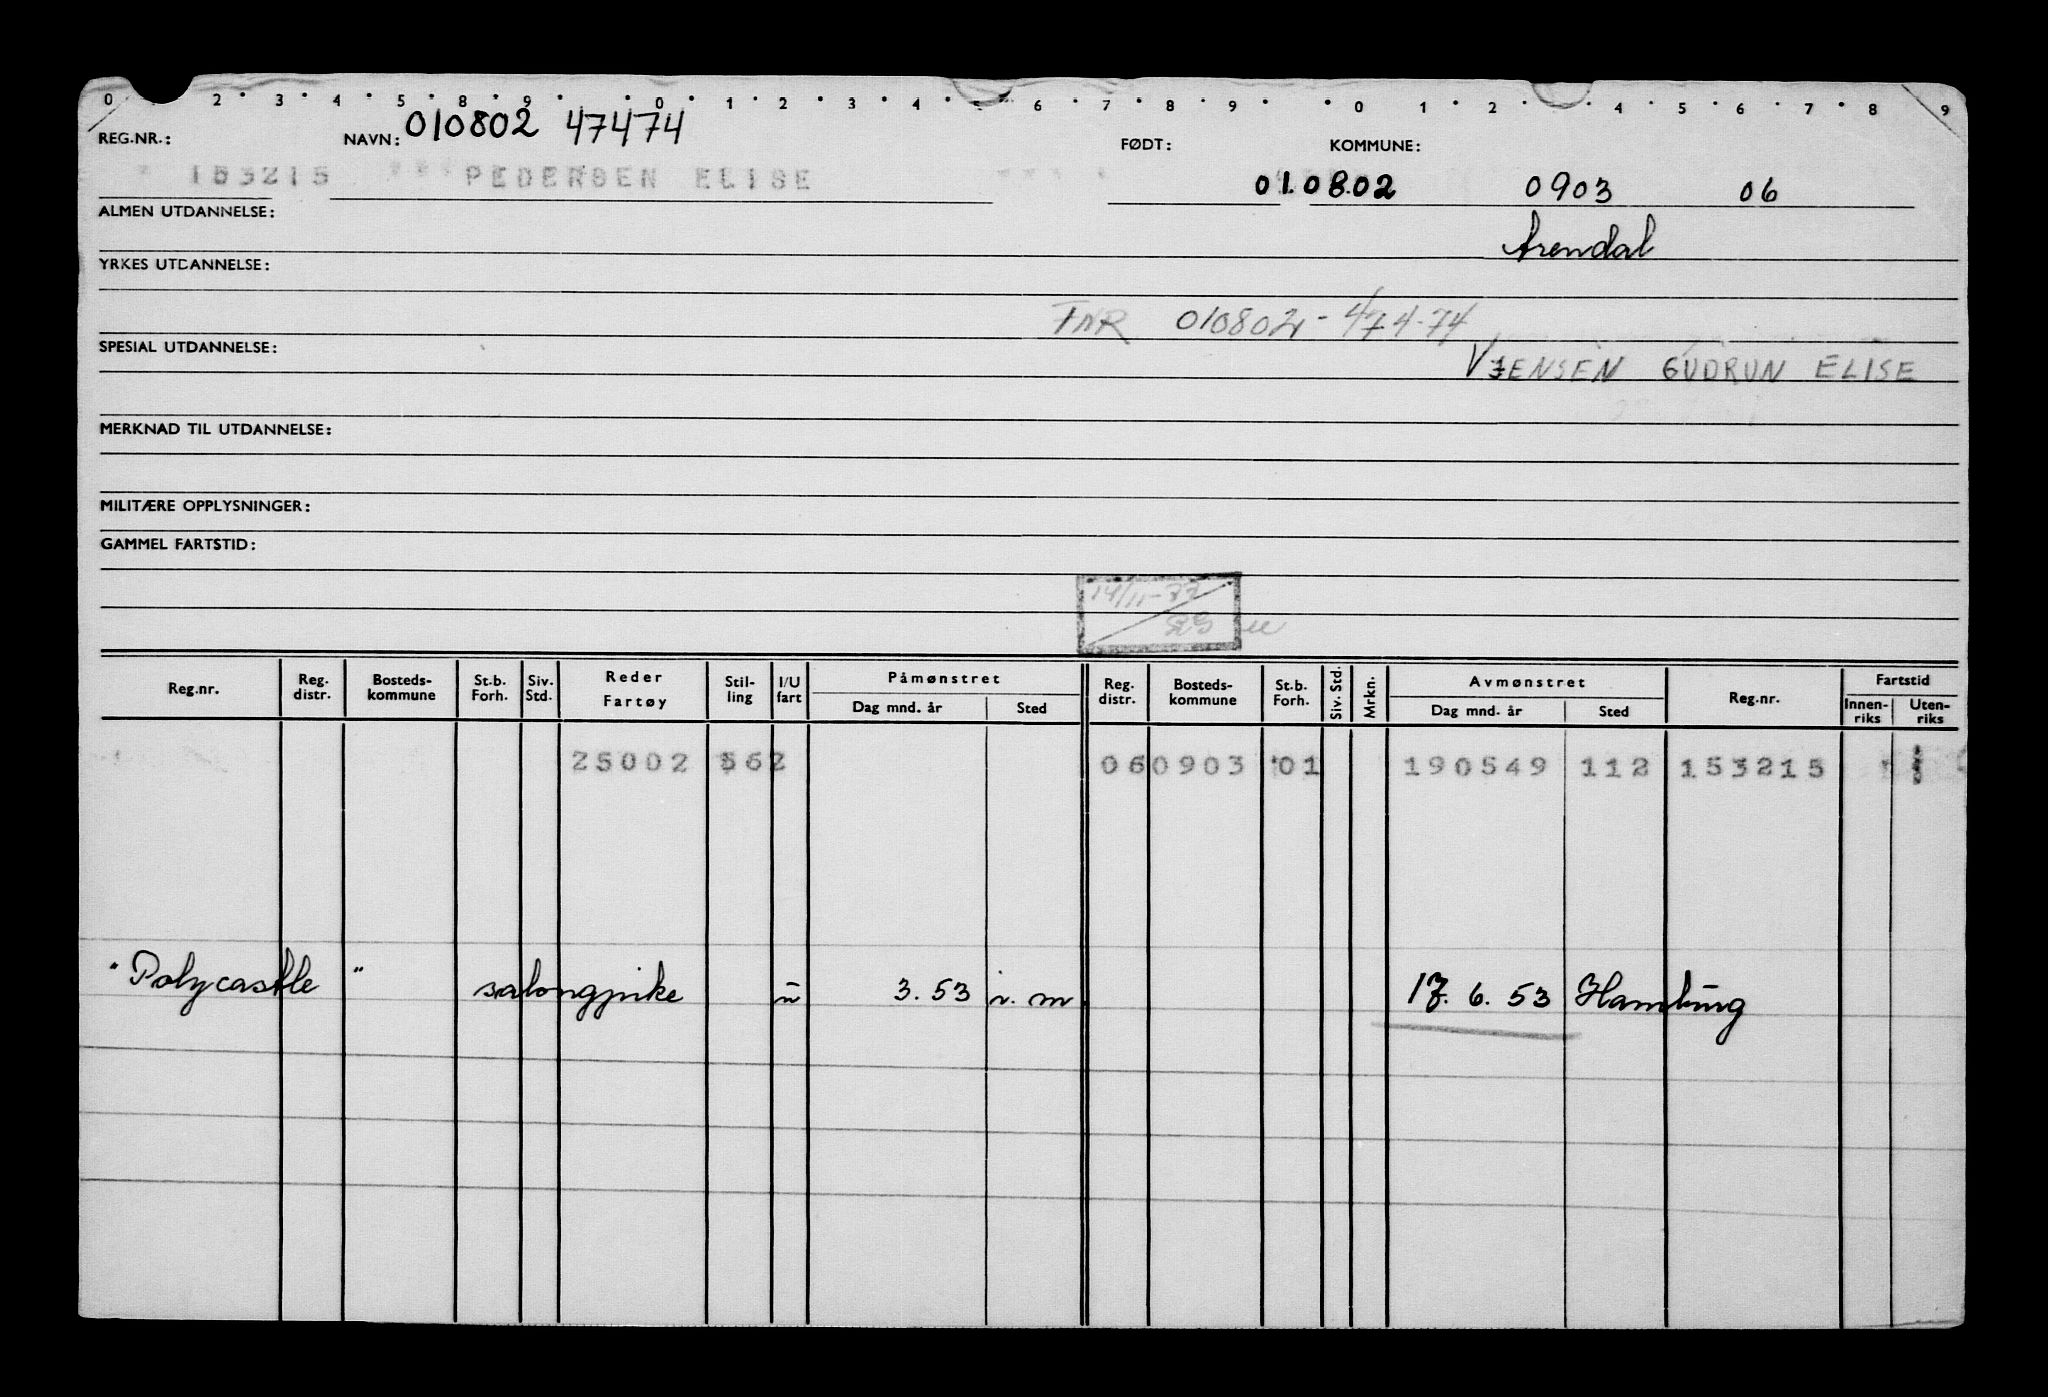 0 2 3 4 5 8 9 0 1 2 3 4 6 7 8 9 0 1 2 4 5 6 7 8 9
REG.NR.: NAVN: 010802 47474 FØDT: KOMMUNE:
153215 PEDERSEN ELISE 01.08.02 0903 06
ALMEN UTDANNELSE: Arendal
YRKES UTDANNELSE:
FNR 010802-474-74
SPESIAL UTDANNELSE: V JENSEN GUDRUN ELISE
MERKNAD TIL UTDANNELSE:
MILITÆRE OPPLYSNINGER:
GAMMEL FARTSTID:
14/11-77
Reg.nr. Reg. distr. Bosteds-kommune St.b. Forh. Siv. Std. Reder Fartøy Stil-ling I/U fart Påmønstret Dag mnd. år Sted Reg. distr. Bosteds-kommune St.b. Forh. Siv. Std. Mrkn. Avmønstret Dag mnd. år Sted Reg.nr. Fartstid Innen-riks Uten-riks
25002 562 060903 01 190549 112 153215
"Polycastle" salongpike u 3. 53 i. m. 17. 6. 53 Hamburg